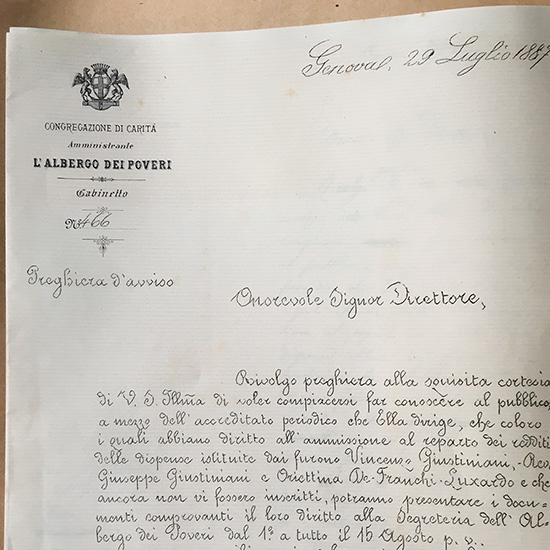 Genova, 29 Luglio 1887
CONGREGAZIONE DI CARITÀ
Amministrante
L'ALBERGO DEI POVERI
Gabinetto
N.° 466
Preghiera d'avviso
Onorevole Signor Direttore,
Rivolgo preghiera alla squisita cortesia
di V. S. Ill.ma di voler compiacersi far conoscere al pubblico,
a mezzo dell'accreditato periodico che Ella dirige, che coloro
i quali abbiano diritto all'ammissione al reparto dei redditi
delle dispense istituite dai furono Vincenzo Giustiniani,
Giuseppe Giustiniani e Oriettina De-Franchi-Luxardo e che
ancora non vi fossero inscritti, potranno presentare i docu-
menti comprovanti il loro diritto alla Segreteria dell'Al-
bergo dei Poveri dal 1° a tutto il 15 Agosto p. v..